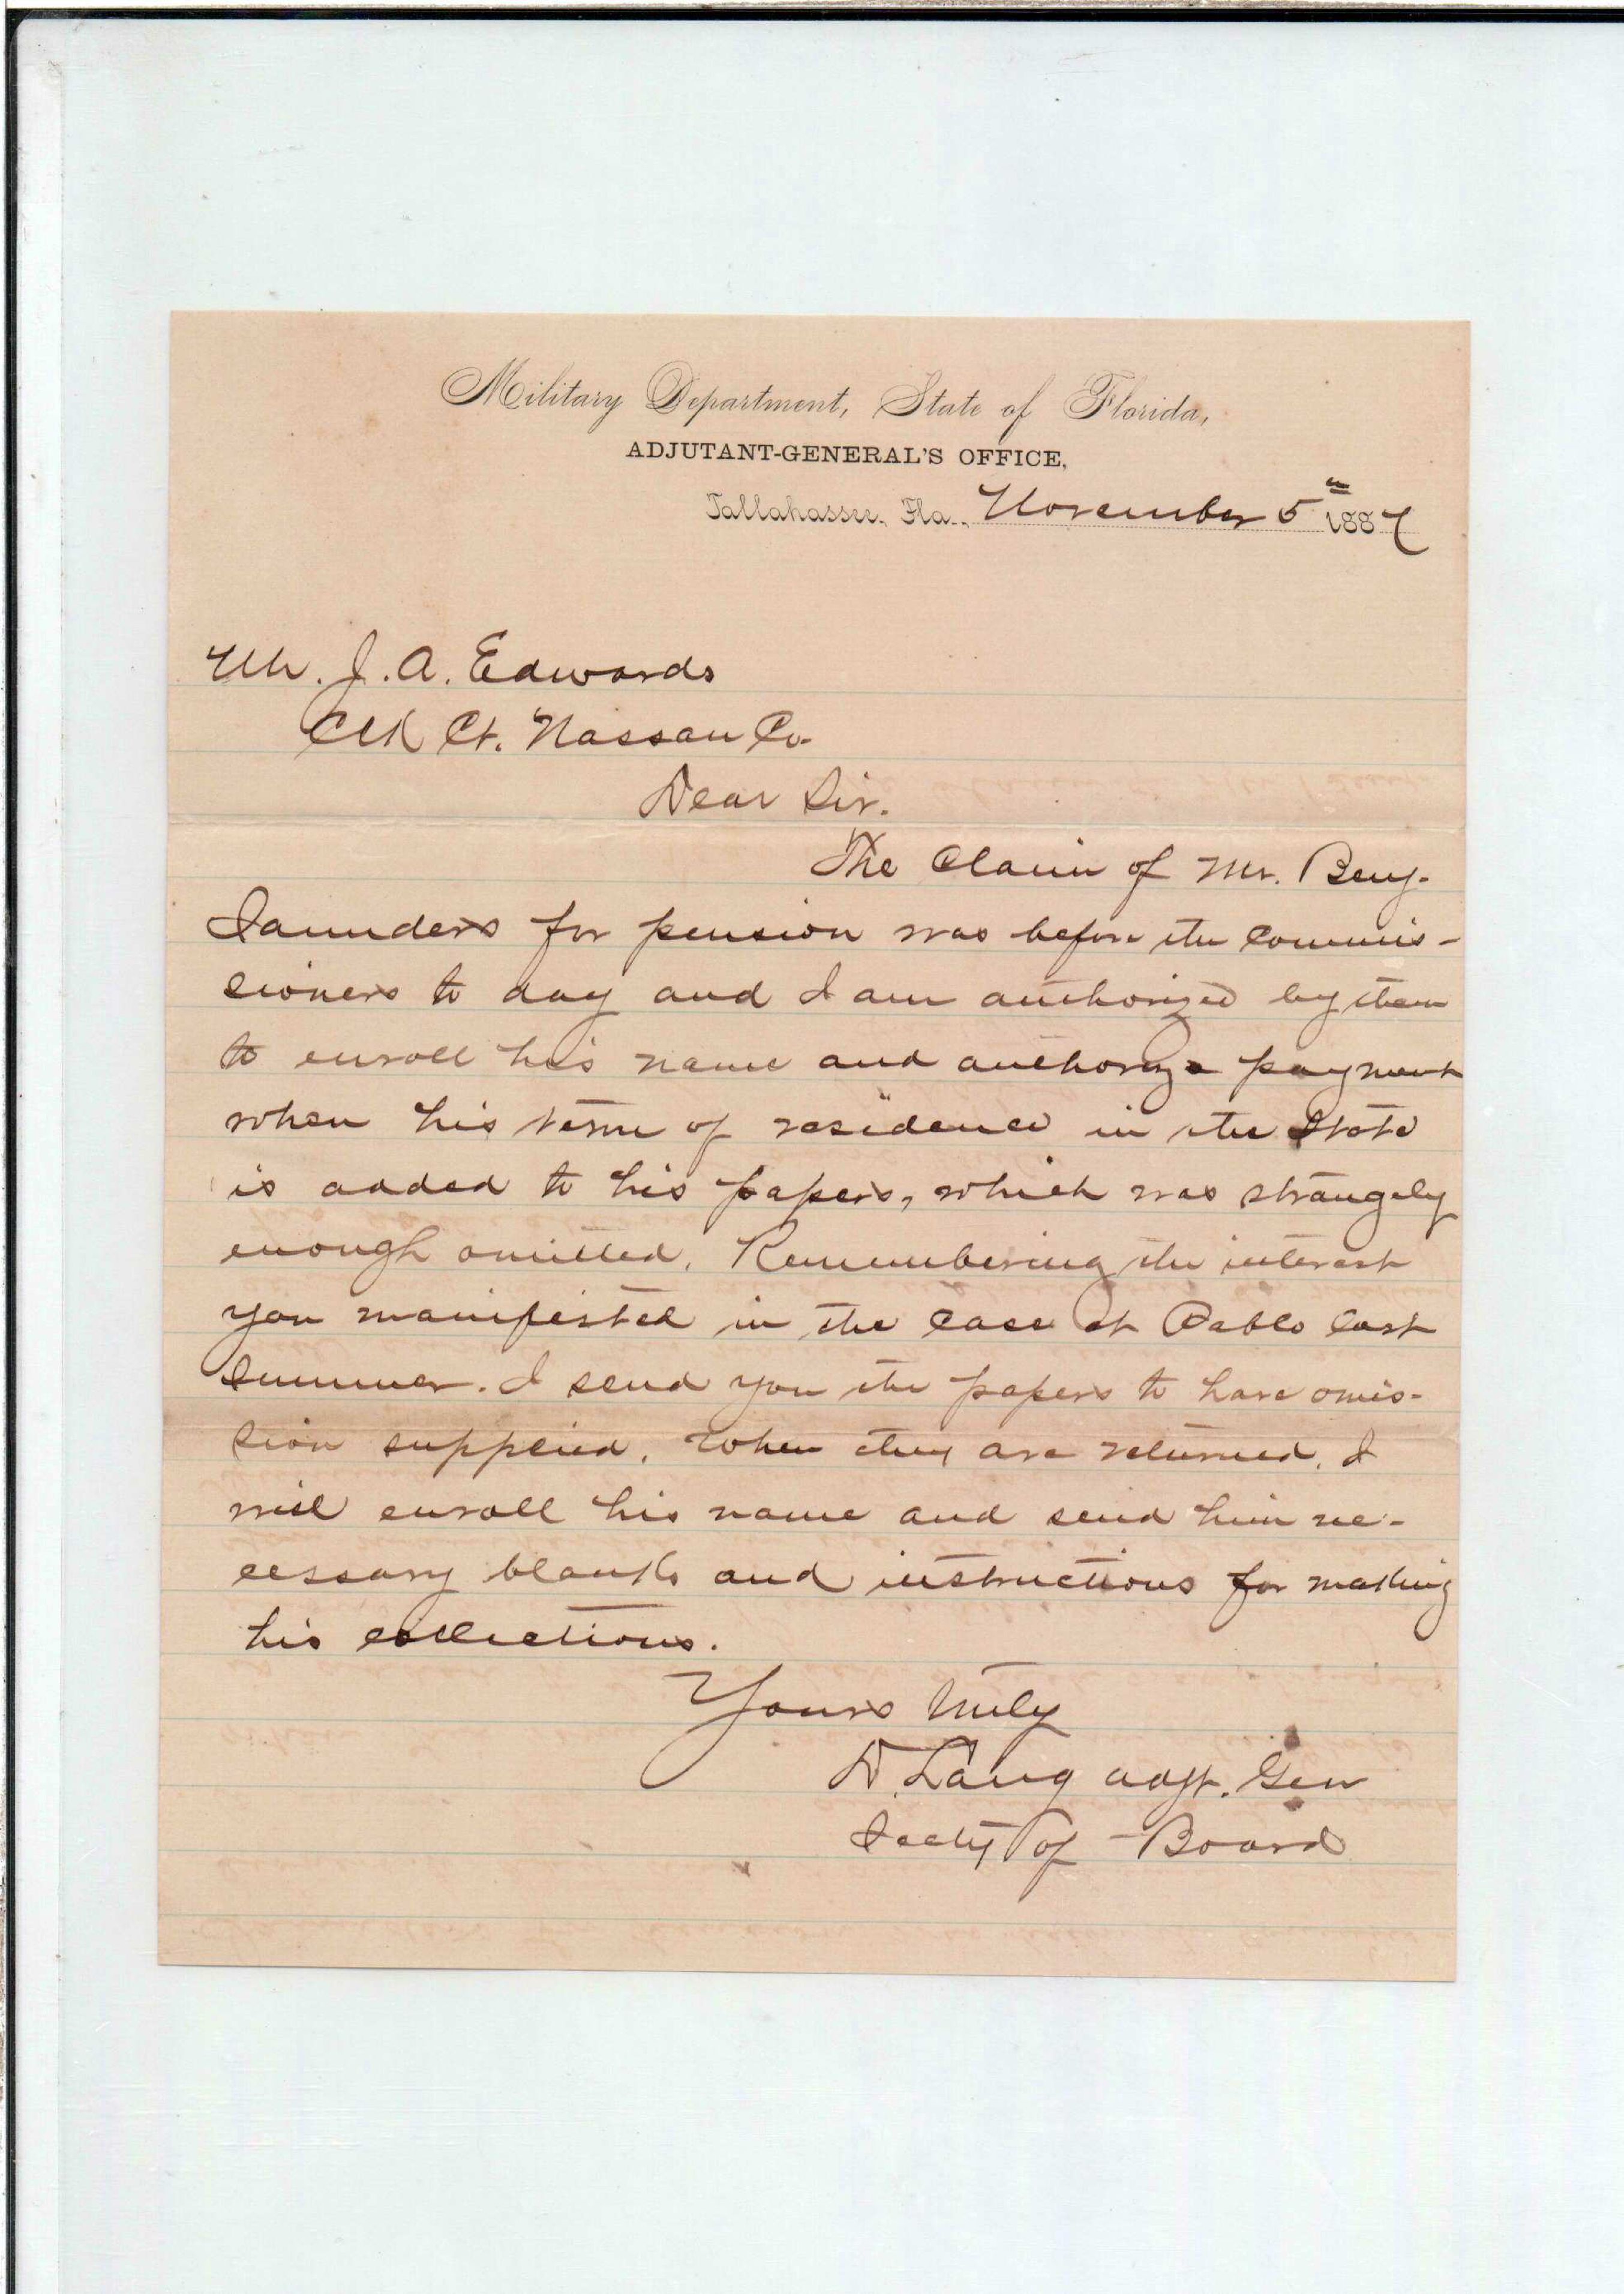 Military Department, State of Florida,
ADJUTANT-GENERAL'S OFFICE,
Tallahassee, Fla., November 5th 1887
Mr. J. A. Edwards
Clk Ct. Nassau Co.
Dear Sir.
The Claim of Mr. Benj.
Saunders for pension was before the Commis-
sioners to day and I am authorized by them
to enroll his name and authorize payment
when his term of residence in the State
is added to his papers, which was strangely
enough omitted. Remembering the interest
you manifested in the case at Pablo last
summer. I send you the papers to have omis-
sion supplied. When they are returned, I
will enroll his name and send him ne-
cessary blanks and instructions for making
his collections.
Yours truly
D. Lang Adjt. Gen
Secty of Board